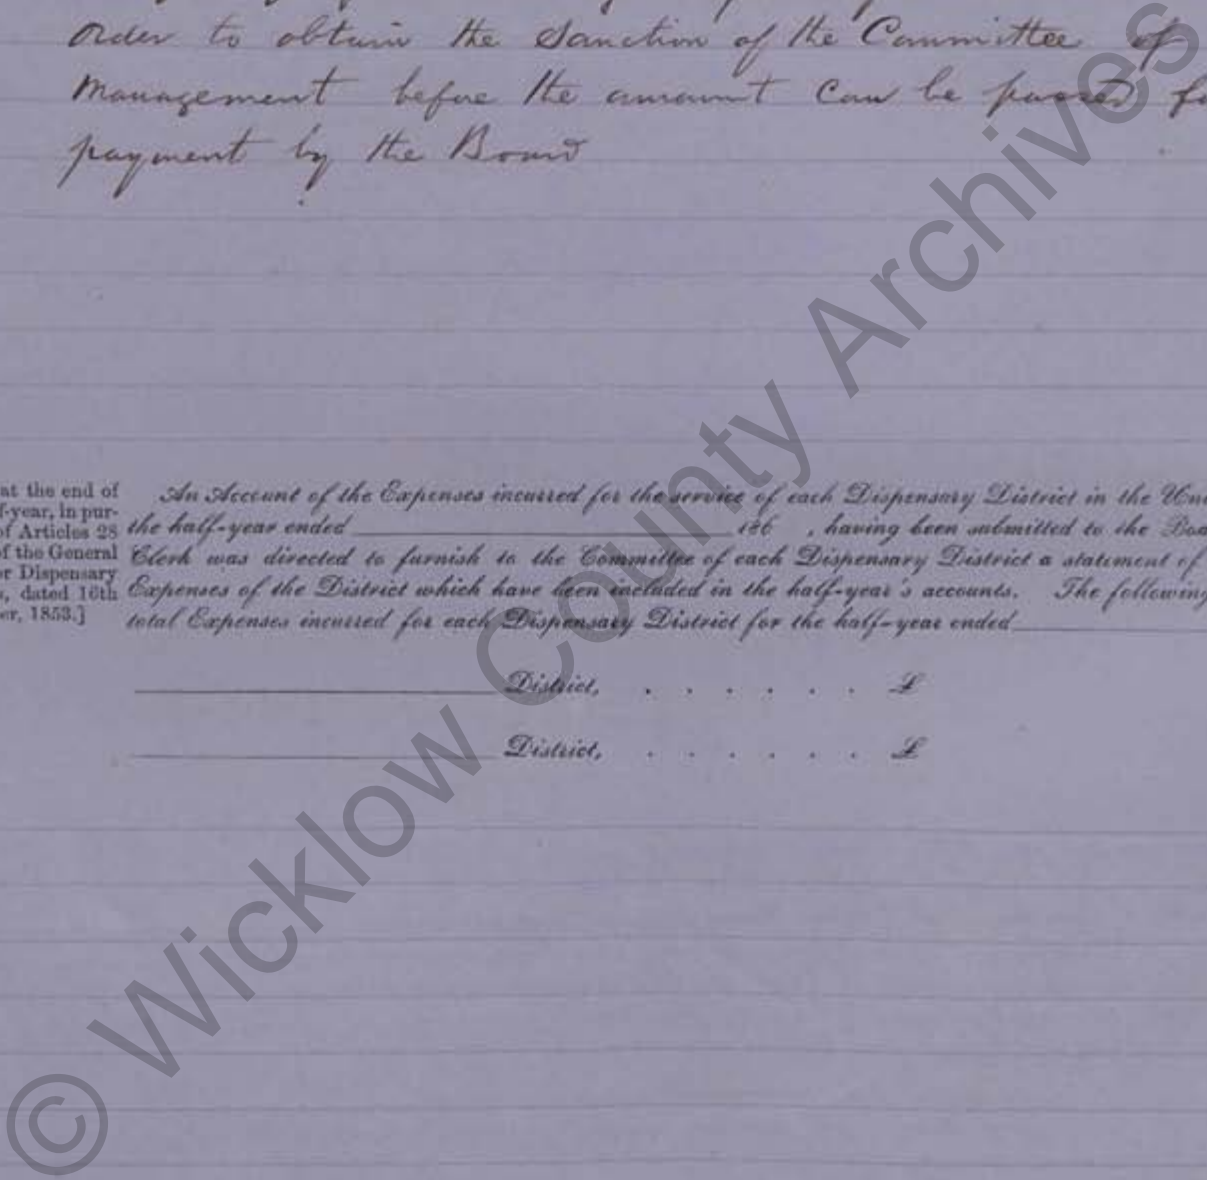 order to obtain the Sanction of the Committee of
Management before the amount can be passed fo
payment by the Board
at the end of
f-year, in pur-
of Articles 28
of the General
r Dispensary
s, dated 16th
er, 1853.]
An Account of the Expenses incurred for the service of each Dispensary District in the Un
the half-year ended 186 , having been submitted to the Boa
Clerk was directed to furnish to the Committee of each Dispensary District a statement of
Expenses of the District which have been included in the half-year's accounts. The following
total Expenses incurred for each Dispensary District for the half-year ended
District, . . . . . . £
District, . . . . . . £
© Wicklow County Archives